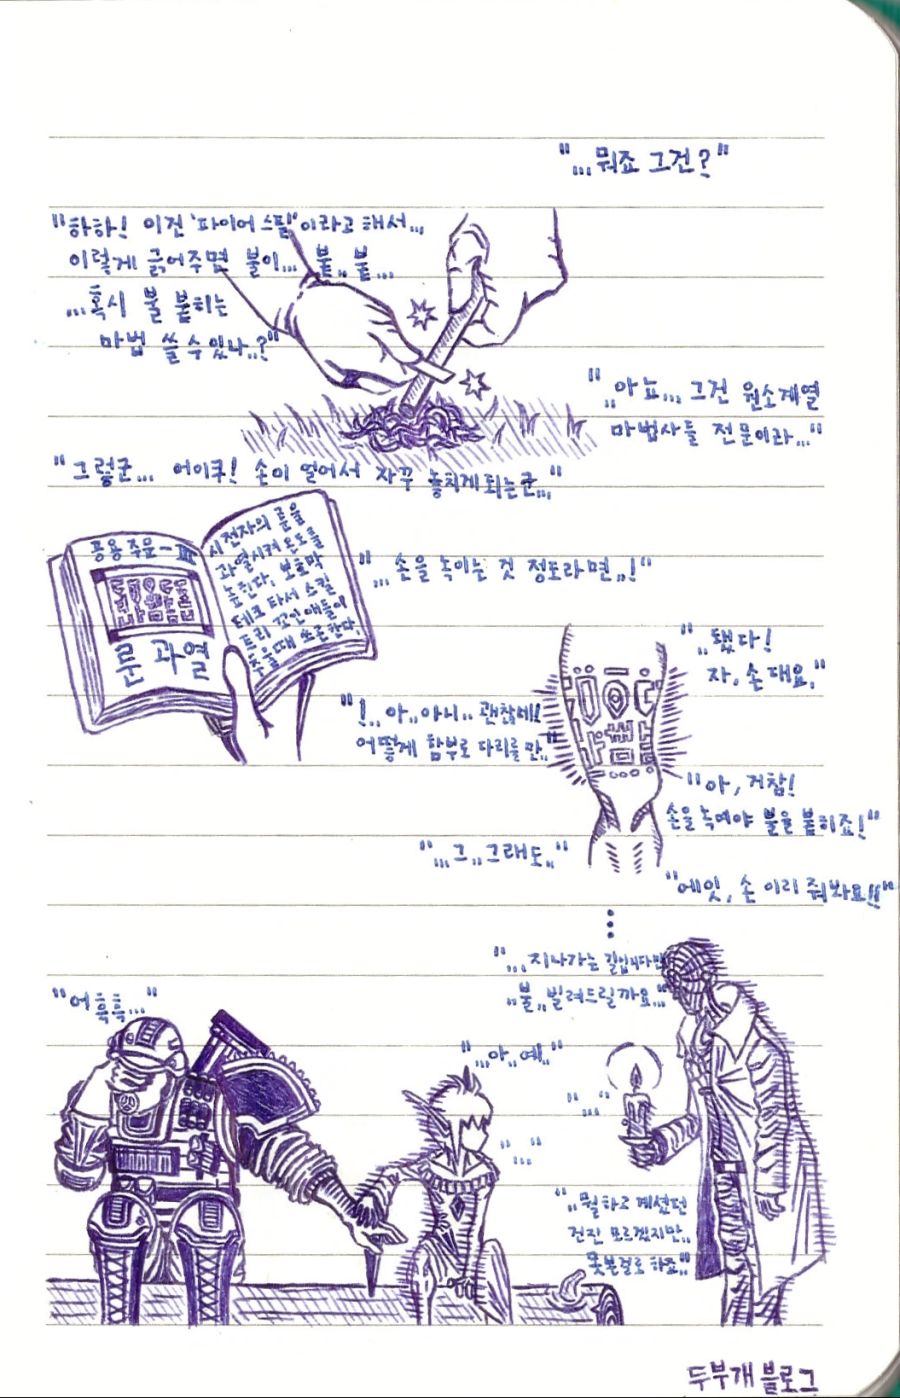 "...뭐죠 그건?"
"하하! 이건 '파이어스틸'이라고 해서...
이렇게 긁어주면 불이... 붙.. 붙...
...혹시 불 붙히는
마법 쓸 수 있나..?"
"..아뇨... 그건 원소계열
마법사들 전문이라..."
"그렇군... 어이쿠! 손이 얼어서 자꾸 놓치게 되는군..."
공용주문-III
룬 과열
시전자의 룬을
과열시켜 온도를
높힌다. 보호막
테크 타서 스킬
트리 꼬인 애들이
추울때 쓰곤한다.
"...손을 녹이는 것 정도라면..!"
"..됐다!
자, 손 대요."
"!..아..아니.. 괜찮네!!
어떻게 함부로 다리를 만.."
"아, 거참!
손을 녹여야 불을 붙히죠!"
"...그..그래도.."
"에잇, 손 이리 줘봐요!!"
"...지나가는 길입니다만
..불..빌려드릴까요..."
"어흑흑..."
"...아..예.."
"..."
"..."
"..뭘 하고 계셨던
건진 모르겠지만..
못본걸로 하죠.."
두부개 블로그